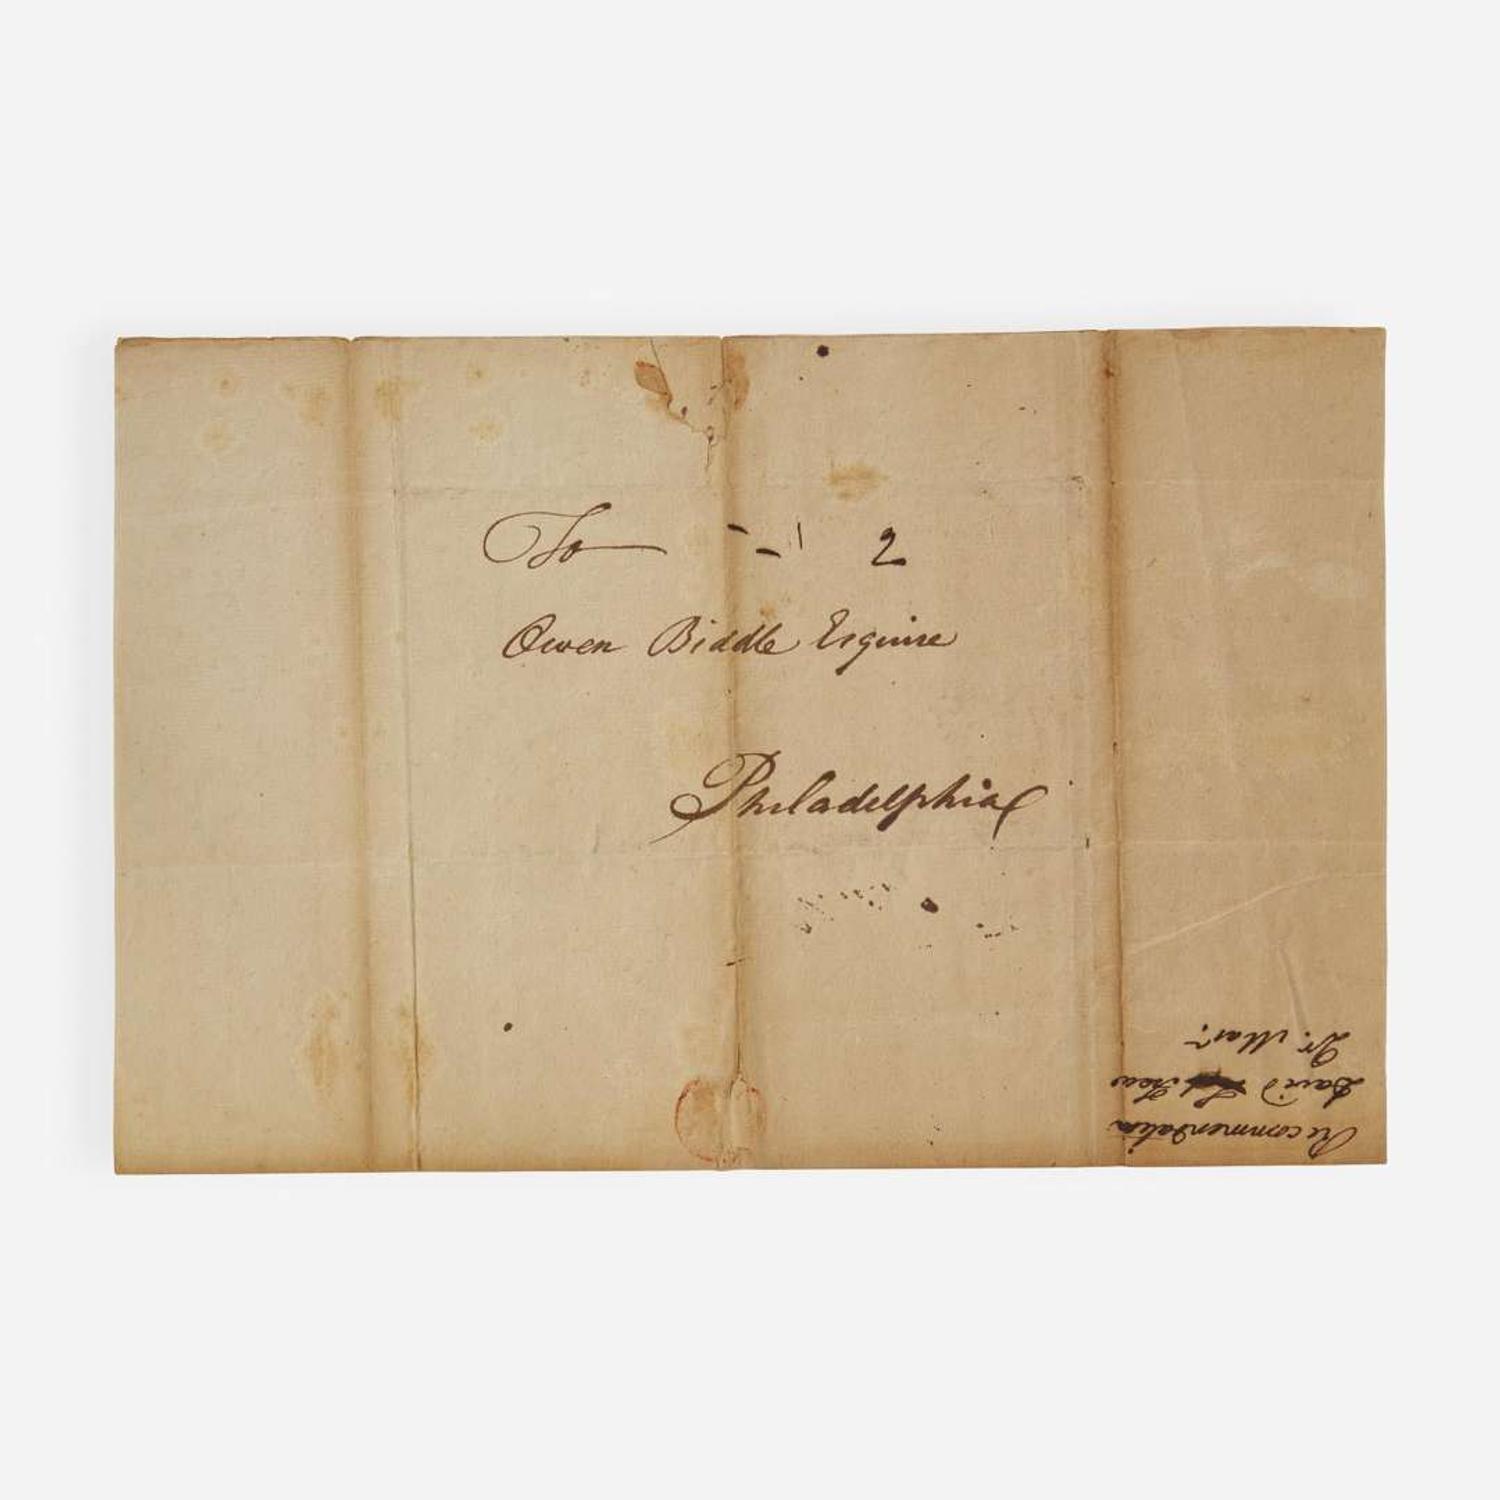 To - - 2
Owen Biddle Esquire
Philadelphia
Recommendation
David
Dr.